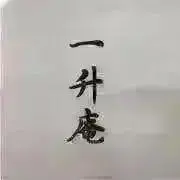 一升庵